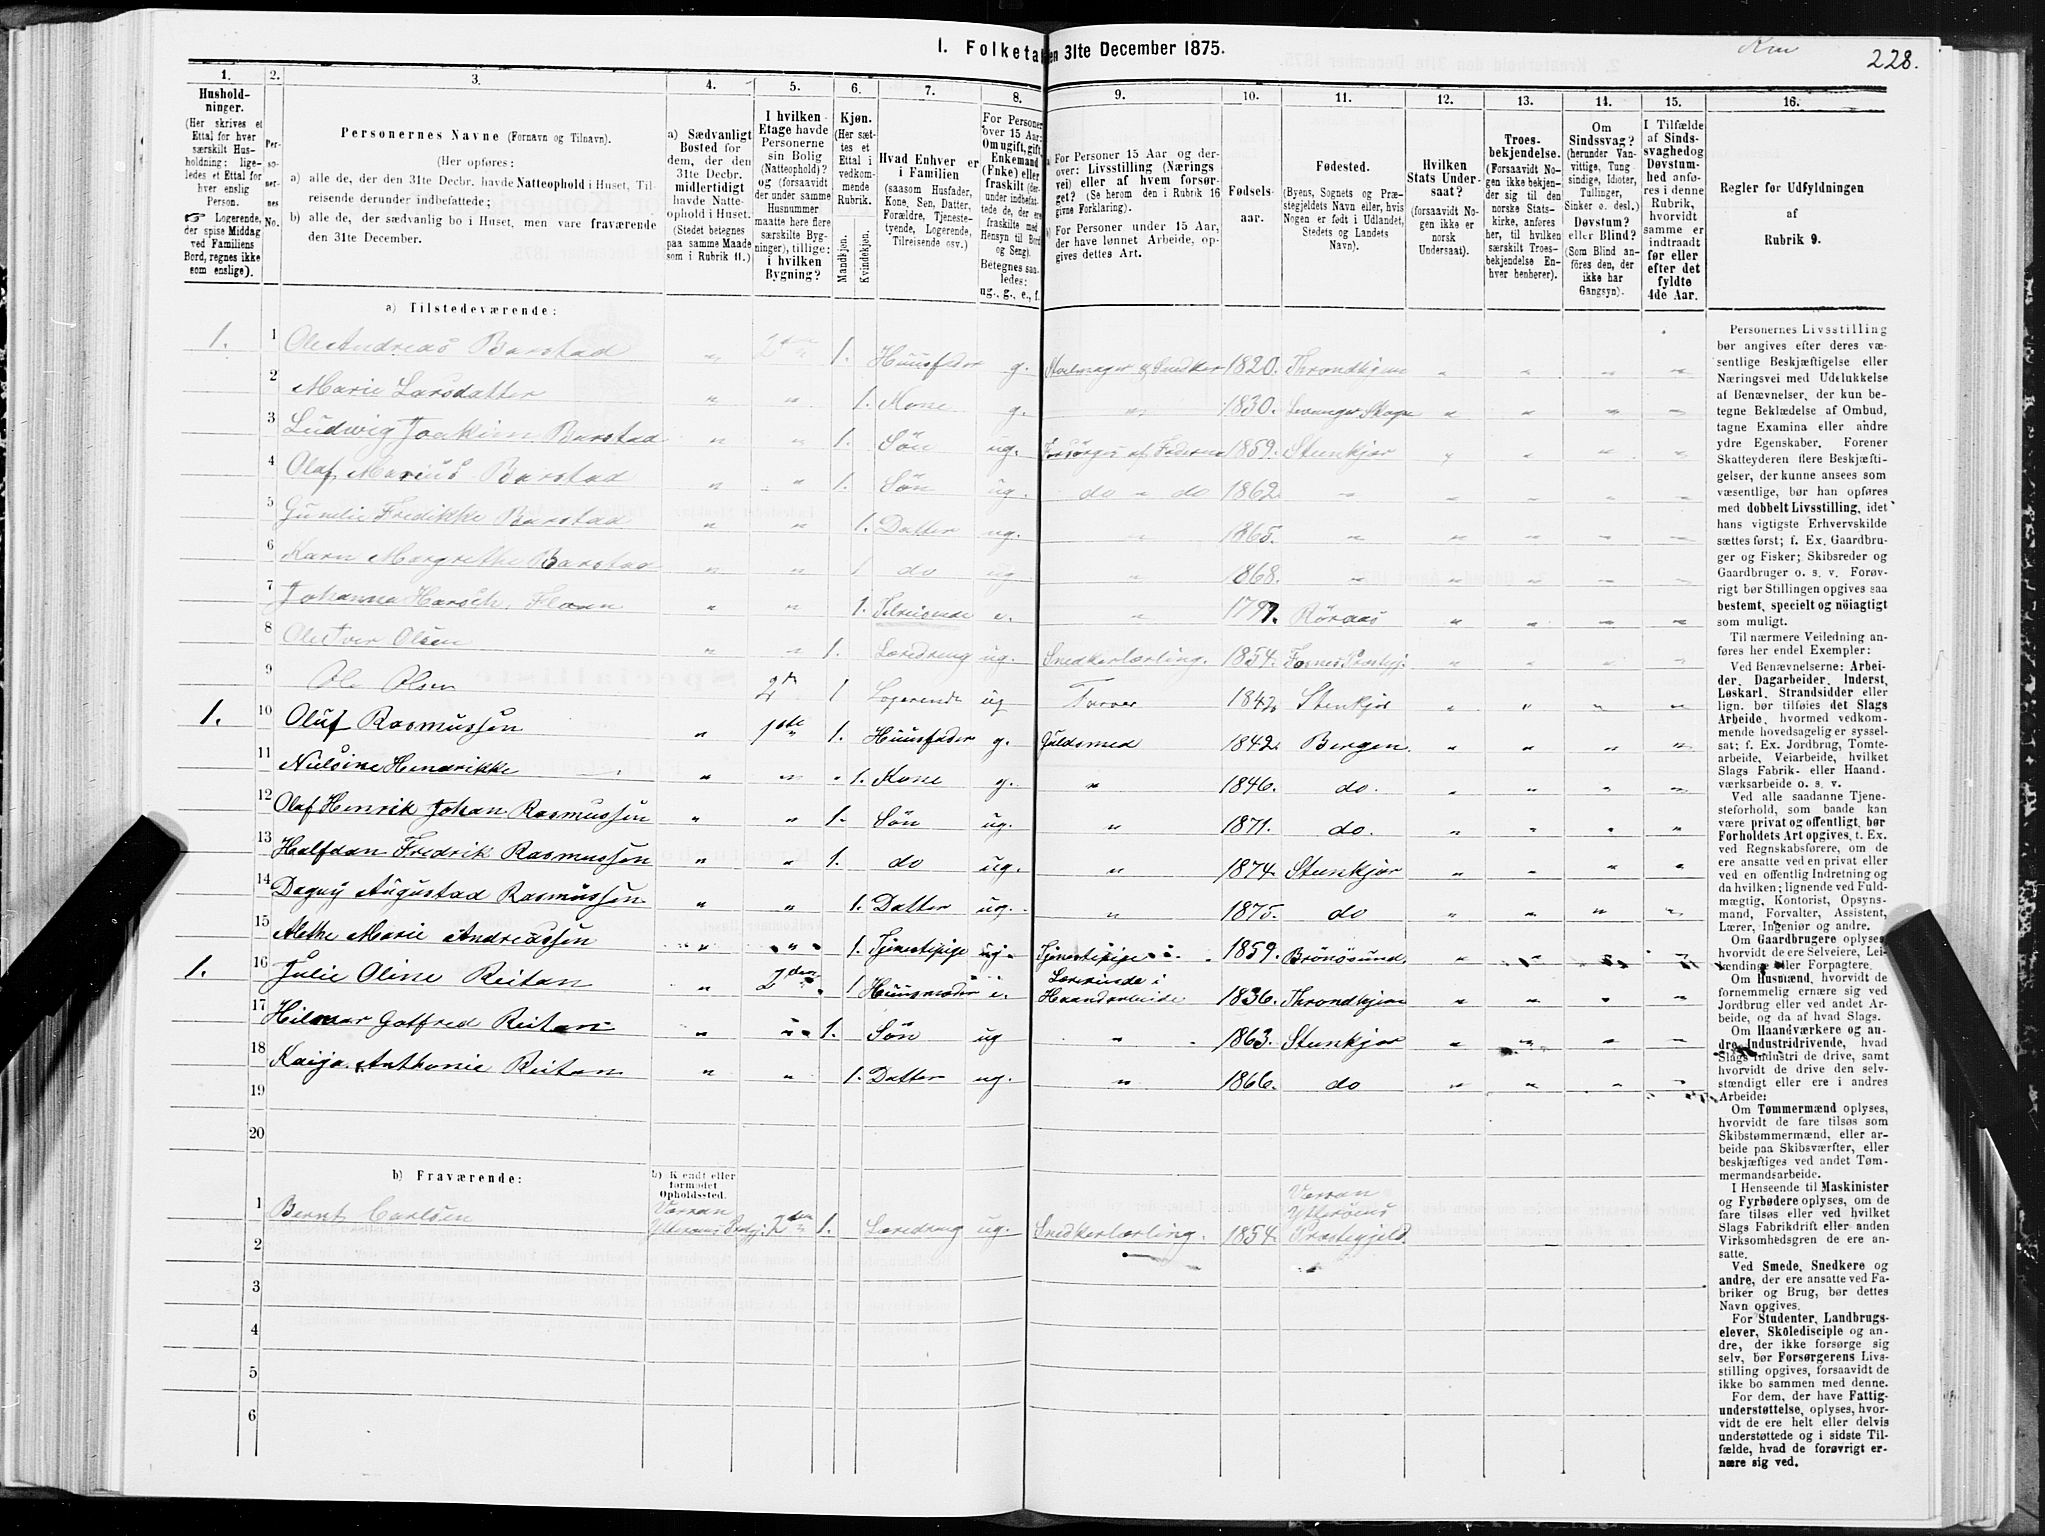 I. Folketal den 31te December 1875.
228.
1.
2.
3.
4.
5.
6.
7.
8.
9.
10.
11.
12.
13.
14.
15.
16.
Hushold-
ninger.
(Her skrives et
Ettal for hver
særskilt Hus-
holdning; lige-
ledes et Ettal for
hver enslig
Person.
☞ Logerende,
der spise Middag
ved Familiens
Bord, regnes ikke
som enslige).
Per-
so-
ner-
nes
No.
Personernes Navne (Fornavn og Tilnavn).
(Her opføres:
a) alle de, der den 31te Decbr. havde Natteophold i Huset, Til-
reisende derunder indbefattede;
b) alle de, der sædvanlig bo i Huset, men vare fraværende
den 31te December.
a) Sædvanligt
Bosted for
dem, der den
31te Decbr.
midlertidigt
havde Natte-
ophold i Huset.
(Stedet betegnes
paa samme Maade
som i Rubrik 11.)
I hvilken
Etage havde
Personerne
sin Bolig
(Natteophold)?
og (forsaavidt
der under samme
Husnummer
maatte høre flere
særskilte Byg-
ninger), tillige:
i hvilken
Bygning?
Kjøn.
(Her sæt-
tes et
Ettal i
vedkom-
mende
Rubrik.
Mandkjøn.
Kvindekjøn.
Hvad Enhver er
i Familien
(saasom Husfader,
Kone, Søn, Datter,
Forældre, Tjeneste-
tyende, Logerende,
Tilreisende osv.)
For Personer
over 15 Aar:
Om ugift, gift,
Enkemand
(Enke) eller
fraskilt (der-
under indbefat-
tede de, der ere
fraskilte med
Hensyn til Bord
og Seng).
Betegnes saa-
ledes:
ug., g., e., f.
a) For Personer 15 Aar og der-
over: Livsstilling (Nærings
vei) eller af hvem forsør-
get? (Se herom den i Rubrik 16
givne Forklaring).
b) For Personer under 15 Aar,
der have lønnet Arbeide, op-
gives dettes Art.
Fødsels-
aar.
Fødested.
(Byens, Sognets og Præ-
stegjeldets Navn eller, hvis
Nogen er født i Udlandet,
Stedets og Landets
Navn).
Hvilken
Stats Under-
saat?
(forsaavidt No-
gen ikke er
norsk
Undersaat).
Troes-
bekjendelse.
(Forsaavidt No-
gen ikke bekjen-
der sig til den
norske Stats-
kirke, anføres
her, til hvilken
særskilt Troes-
bekjendelse En-
hver henhører).
Om
Sindssvag?
(herunder Van-
vittige, Tung
sindige, Idioter,
Tullinger,
Sinker o. desl.)
Døvstum?
eller Blind?
(Som Blind an-
føres den, der
ikke har
Gangsyn).
I Tilfælde
af Sinds-
svaghed og
Døvstum-
hed anfø-
res i denne
Rubrik,
hvorvidt
samme er
indtraadt
før eller
efter det
fyldte
4de Aar.
Regler for Udfyldningen
af
Rubrik 9.
a) Tilstedeværende:
1. 1 Ole Andreas Barstad „ 2den 1. Huusfader g. Stolmager & Snedker 1820. Throndhjem „ „ „ „
2 Marie Larsdatter „ „ 1. Kone g. „ 1830. Levanger Skogn „ „ „ „
3 Ludwig Joakim Barstad „ „ 1. Søn ug. Forsørges af Faderen 1859. Stenkjær „ „ „ „
4 Olaf Marius Barstad „ „ 1. Søn ug. do „ do 1862. „ „ „ „ „
5 Gunelie Fredikke Barstad „ „ 1. Datter ug. „ 1865. „ „ „ „ „
6 Karn Margrethe Barstad „ „ 1 do ug „ 1868. „ „ „ „ „
7 Johanna Harsch. Floan „ „ 1. Tilreisende e. „ Röraas „ „ „ „
8 Ole Iver Olsen „ „ 1. Læredreng ug. Snedkerlærling. 1854. Fosnes Præstgj. „ „ „ „
9 Ole Olsen 2den 1 Logerende ug Farver 1842 Stenkjær „ „ „ „
1. 10 Oluf Rasmussen „ 1ste 1. Huusfader g. Guldsmed 1842. Bergen. „ „ „ „
11 Nielsine Hendrikke „ „ 1. Kone g. „ 1846. do. „ „ „ „
12 Olaf Henrik Johan Rasmussen „ „ 1. Søn ug. „ 1871. do. „ „ „ „
13 Halfdan Fredrik Rasmussen „ „ 1. do ug. „ 1874. Stenkjær „ „ „ „
14 Dagny Augustad Rasmussen „ „ 1. Datter ug. „ 1875. do „ „ „ „
15 Alethe Marie Andreassen „ „ 1. Tjenestepige ug. Tjenestepige 1859. Brönösund. „ „ „ „
1. 16 Julie Oline Reitan „ 2den 1 Huusmoder e. Lærerinde i
Haandarbeide 1836. Throndhjem „ „ „ „
17 Hilmar Gotfred Reitan „ „ 1. Søn ug „ 1863. Stenkjær „ „ „ „
18 Kaija Anthonie Reitan „ „ 1. Datter ug. „ 1866. do „ „ „ „
19
20
b) Fraværende:
b) Kjendt eller
formodet
Opholdssted.
1 Bernt Carlsen Værran
Ytterøens Præstgj. 2den 1. Læredreng ug. Snedkerlærling. 1854. Værran
Ytterøens
Præstegjeld.
2
3
4
5
6
Personernes Livsstilling
bør angives efter deres væ-
sentlige Beskjæftigelse eller
Næringsvei med Udelukkelse
af Benævnelser, der kun be-
tegne Beklædelse af Ombud,
tagne Examina eller andre
ydre Egenskaber. Forener
Skatteyderen flere Beskjæfti-
gelser, der kunne ansees som
væsentlige, bør han opføres
med dobbelt Livsstilling, idet
hans vigtigste Erhvervskilde
sættes først; f. Ex. Gaardbru-
ger og Fisker; Skibsreder og
Gaardbruger o. s. v. Forøv-
rigt bør Stillingen opgives saa
bestemt, specielt og nöiagtigt
som muligt.
Til nærmere Veiledning an-
føres her endel Exempler:
Ved Benævnelserne: Arbei-
der, Dagarbeider, Inderst,
Løskarl, Strandsidder eller
lign. bør tilføies det Slags
Arbeide, hvormed vedkom-
mende hovedsagelig er syssel-
sat; f. Ex. Jordbrug, Tomte-
arbeide, Veiarbeide, hvilket
Slags Fabrik- eller Haand-
værksarbeide o. s. v.
Ved alle saadanne Tjene-
steforhold, som baade kan
være privat og offentligt, bør
Forholdets Art opgives, t. Ex.
ved Regnskabsførere, om de
ere ansatte ved en privat eller
ved en offentlig Indretning og
da hvilken; lignende ved Fuld-
mægtig, Kontorist, Opsyns-
mand, Forvalter, Assistent,
Lærer, Ingeniør og andre.
Om Gaardbrugere oplyses,
hvorvidt de ere Selveiere, Lei-
lændinge eller Forpagtere.
Om Husmænd, hvorvidt de
fornemmelig ernære sig ved
Jordbrug eller ved andet Ar-
beide, og da af hvad Slags.
Om Haandværkere og an-
dre Industridrivende, hvad
Slags Industri de drive, samt
hvorvidt de drive den selv-
stændigt eller ere i andres
Arbeide:
Om Tømmermænd oplyses,
hvorvidt de fare tilsøs som
Skibstømmermænd, eller ar-
beide paa Skibsværfter, eller
beskjæftiges ved andet Tøm-
mermandsarbeide.
I Henseende til Maskinister
og Fyrbødere oplyses, om de
fare tilsøs eller ved hvilket
Slags Fabrikdrift eller anden
Virksomhedsgren de ere an-
satte.
Ved Smede, Snedkere og
andre, der ere ansatte ved Fa-
briker og Brug, bør dettes
Navn opgives.
For Studenter, Landbrugs-
elever, Skoledisciple og an-
dre, der ikke forsørge sig
selv, bør Forsørgerens Livs-
stilling opgives, forsaavidt de
ikke bo sammen med denne.
For dem, der have Fattig-
understøttelse, oplyses, hvor-
vidt de ere helt eller delvis
understøttede og i sidste Til-
fælde, hvad de forøvrigt er-
nære sig ved.